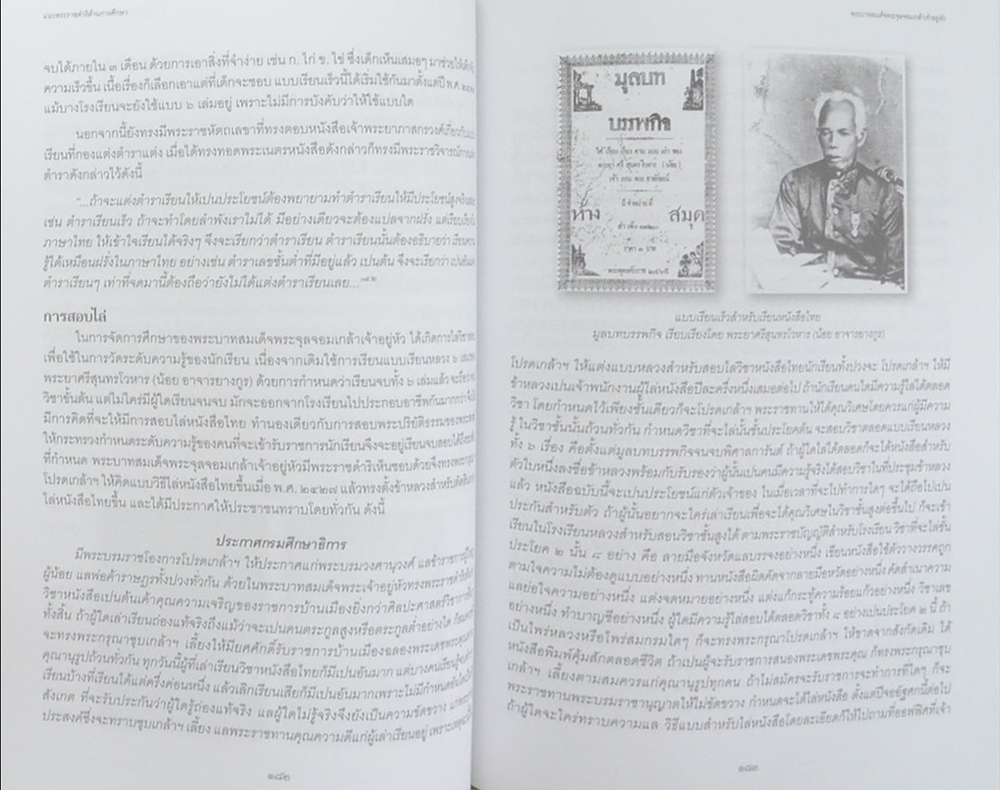 แนวพระราชดำริด้านการศึกษา
จบได้ภายใน ๓ เดือน ด้วยการเอาสิ่งที่จำง่าย เช่น ก. ไก่ ข. ไข่ ซึ่งเด็กเห็นเสมอๆ มาช่วยให้เด็ก
ความเร็วขึ้น เนื้อเรื่องก็เลือกเอาแต่ที่เด็กจะชอบ แบบเรียนเร็วนี้ได้เริ่มใช้กันมาตั้งแต่ปี พ.ศ.
แม้บางโรงเรียนจะยังใช้แบบ ๖ เล่มอยู่ เพราะไม่มีการบังคับว่าให้ใช้แบบใด
นอกจากนี้ยังทรงมีพระราชหัตถเลขาที่ทรงตอบหนังสือเจ้าพระยาภาสกรวงศ์เกี่ยวกับ
เรียนที่กองแต่งตำราแต่ง เมื่อได้ทรงทอดพระเนตรหนังสือดังกล่าวก็ทรงมีพระราชวิจารณ์
ตำราดังกล่าวไว้ดังนี้
“...ถ้าจะแต่งตำราเรียนให้เปนประโยชน์ต้องพยายามทำตำราเรียนให้มีประโยชน์สูงขึ้น
เช่น ตำราเรียนเร็ว ถ้าจะทำโดยลำพังเราไม่ได้ มีอย่างเดียวจะต้องแปลจากฝรั่ง แต่เรียบเรียง
ภาษาไทย ให้เข้าใจเรียนได้จริงๆ จึงจะเรียกว่าตำราเรียน ตำราเรียนนั้นต้องอธิบายว่า เรียน
รู้ได้เหมือนฝรั่งในภาษาไทย อย่างเช่น ตำราเลขชั้นต่ำที่มีอยู่แล้ว เปนต้น จึงจะเรียกว่า เปน
ตำราเรียนๆ เท่าที่จดมานี้ต้องถือว่ายังไม่ได้แต่งตำราเรียนเลย...”
การสอบไล่
ในการจัดการศึกษาของพระบาทสมเด็จพระจุลจอมเกล้าเจ้าอยู่หัว ได้เกิดการไล่วิชา
เพื่อใช้ในการวัดระดับความรู้ของนักเรียน เนื่องจากเดิมใช้การเรียนแบบหลวง ๖ เล่ม
พระยาศรีสุนทรโวหาร (น้อย อาจารยางกูร) ด้วยการกำหนดว่าเรียนจบทั้ง ๖ เล่มแล้ว จะถือว่า
วิชาชั้นต้น แต่ไม่ใคร่มีผู้ใดเรียนจนจบ มักจะออกจากโรงเรียนไปประกอบอาชีพกันมากกว่า
มีการคิดที่จะให้มีการสอบไล่หนังสือไทย ทำนองเดียวกับการสอบพระปริยัติธรรมของ
ให้กระทรวงกำหนดระดับความรู้ของคนที่จะเข้ารับราชการนักเรียนจึงจะอยู่เรียนจบสอบได้
ที่กำหนด พระบาทสมเด็จพระจุลจอมเกล้าเจ้าอยู่หัวมีพระราชดำริเห็นชอบด้วยจึงทรงพระกรุณา
โปรดเกล้าฯ ให้คิดแบบวิธีไล่หนังสือไทยขึ้นเมื่อ พ.ศ. ๒๔๒๗ แล้วทรงตั้งข้าหลวงสำหรับ
ไล่หนังสือไทยขึ้น และได้มีประกาศให้ประชาชนทราบโดยทั่วกัน ดังนี้
ประกาศกรมศึกษาธิการ
มีพระบรมราชโองการโปรดเกล้าฯ ให้ประกาศแก่พระบรมวงศานุวงศ์ แลข้าราชการผู้ใหญ่
ผู้น้อย แลพ่อค้าราษฎรทั้งปวงทั่วกัน ด้วยในพระบาทสมเด็จพระเจ้าอยู่หัวทรงพระราชดำริ
วิชาหนังสือเปนต้นเค้าคุณความเจริญของราชการบ้านเมืองยิ่งกว่าศิลปะศาสตร์วิชาการ
ทั้งสิ้น ถ้าผู้ใดเล่าเรียนถ่องแท้จริงถึงแม้ว่าจะเปนคนตระกูลสูงหรือตระกูลต่ำอย่างใด ก็
จะทรงพระกรุณาชุบเกล้าฯ เลี้ยงให้มียศศักดิ์รับราชการบ้านเมืองฉลองพระเดชพระคุณ
คุณานุรูปถ้วนทั่วกัน ทุกวันนี้ผู้ที่เล่าเรียนวิชาหนังสือไทยก็มีเปนอันมาก แต่บางคนเรียนรู้
เรียนบ้างที่เรียนได้แต่ครึ่งค่อนหนึ่ง แล้วเลิกเรียนเสียก็มีเปนอันมากเพราะไม่มีกำหนด
สังเกต ที่จะรับประกันว่าผู้ใดรู้ถ่องแท้จริง แลผู้ใดไม่รู้จริงจึงยังเปนความขัดขวาง
ประสงค์ซึ่งจะทรงชุบเกล้าฯ เลี้ยง แลพระราชทานคุณความดีแก่ผู้เล่าเรียนอยู่ เพราะเหตุ
๑๘๒
พระบาทสมเด็จพระจุลจอมเกล้าเจ้าอยู่หัว
มูลบท
บรรพกิจ
ห้าง
สมุด
ราคา ๑ บาท
แบบเรียนเร็วสำหรับเรียนหนังสือไทย
มูลบทบรรพกิจ เรียบเรียงโดย พระยาศรีสุนทรโวหาร (น้อย อาจารยางกูร)
โปรดเกล้าฯ ให้แต่งแบบหลวงสำหรับสอบไล่วิชาหนังสือไทยนักเรียนทั้งปวงจะ โปรดเกล้าฯ ให้มี
ข้าหลวงเปนเจ้าพนักงานผู้ไล่หนังสือปีละครั้งหนึ่งเสมอต่อไป ถ้านักเรียนคนใดมีความรู้ไล่ได้ตลอด
วิชา โดยกำหนดไว้เพียงชั้นเดียวก็จะโปรดเกล้าฯ พระราชทานให้ได้คุณวิเศษโดยควรแก่ผู้มีความ
รู้ ในวิชานั้นถ้วนทั่วกัน กำหนดวิชาที่จะไล่นั้นชั้นประโยคต้น จะสอบวิชาตลอดแบบเรียนหลวง
ทั้ง ๖ เรื่อง คือตั้งแต่มูลบทบรรพกิจจนจบพิศาลการันต์ ถ้าผู้ใดไล่ได้ตลอดก็จะได้หนังสือสำหรับ
ตัวใบหนึ่งลงชื่อข้าหลวงพร้อมกับรับรองว่าผู้นั้นเปนคนมีความรู้จริงได้สอบวิชาในที่ประชุมข้าหลวง
แล้ว หนังสือฉบับนี้จะเปนประโยชน์แก่ตัวเจ้าของ ในเมื่อเวลาที่จะไปทำการใดๆ จะได้ถือไปเปน
ประกันสำหรับตัว ถ้าผู้นั้นอยากจะใคร่เล่าเรียนเพื่อจะได้คุณวิเศษในวิชาชั้นสูงต่อขึ้นไป ก็จะเข้า
เรียนในโรงเรียนหลวงสำหรับสอนวิชาชั้นสูงได้ ตามพระราชบัญญัติสำหรับโรงเรียน วิชาที่จะไล่ชั้น
ประโยค ๒ นั้น ๘ อย่าง คือ ลายมือจังหวัดแลบรรจงอย่างหนึ่ง เรียนหนังสือใช้ตัววางวรรคถูก
ตามใจความไม่ต้องดูแบบอย่างหนึ่ง ทานหนังสือผิดคัดจากลายมือหวัดอย่างหนึ่ง คัดสำเนาความ
แลย่อใจความอย่างหนึ่ง แต่งจดหมายอย่างหนึ่ง แต่งแก้กระทู้ความร้อยแก้วอย่างหนึ่ง วิชาเลข
อย่างหนึ่ง ทำบาญชีอย่างหนึ่ง ผู้ใดมีความรู้ไล่สอบได้ตลอดวิชาทั้ง ๘ อย่างเปนประโยค ๒ นี้ ถ้า
เปนไพร่หลวงหรือไพร่สมกรมใดๆ ก็จะทรงพระกรุณาโปรดเกล้าฯ ให้ขาดจากสังกัดเดิม ได้
หนังสือพิมพ์คุ้มสักตลอดชีวิต ถ้าเปนผู้จะรับราชการสนองพระเดชพระคุณ ก็ทรงพระกรุณาชุบ
เกล้าฯ เลี้ยงตามสมควรแก่คุณานุรูปทุกคน ถ้าไม่สมัครจะรับราชการจะทำการที่ใดๆ ก็จะ
พระราชทานพระบรมราชานุญาตให้ไม่ขัดขวาง กำหนดจะได้ไล่หนังสือ ตั้งแต่ปีจออัฐศกนี้ต่อไป
ถ้าผู้ใดจะใคร่ทราบความแล วิธีแบบสำหรับไล่หนังสือโดยละเอียดก็ให้ไปถามที่ออฟฟิศที่เจ้า
๑๘๓